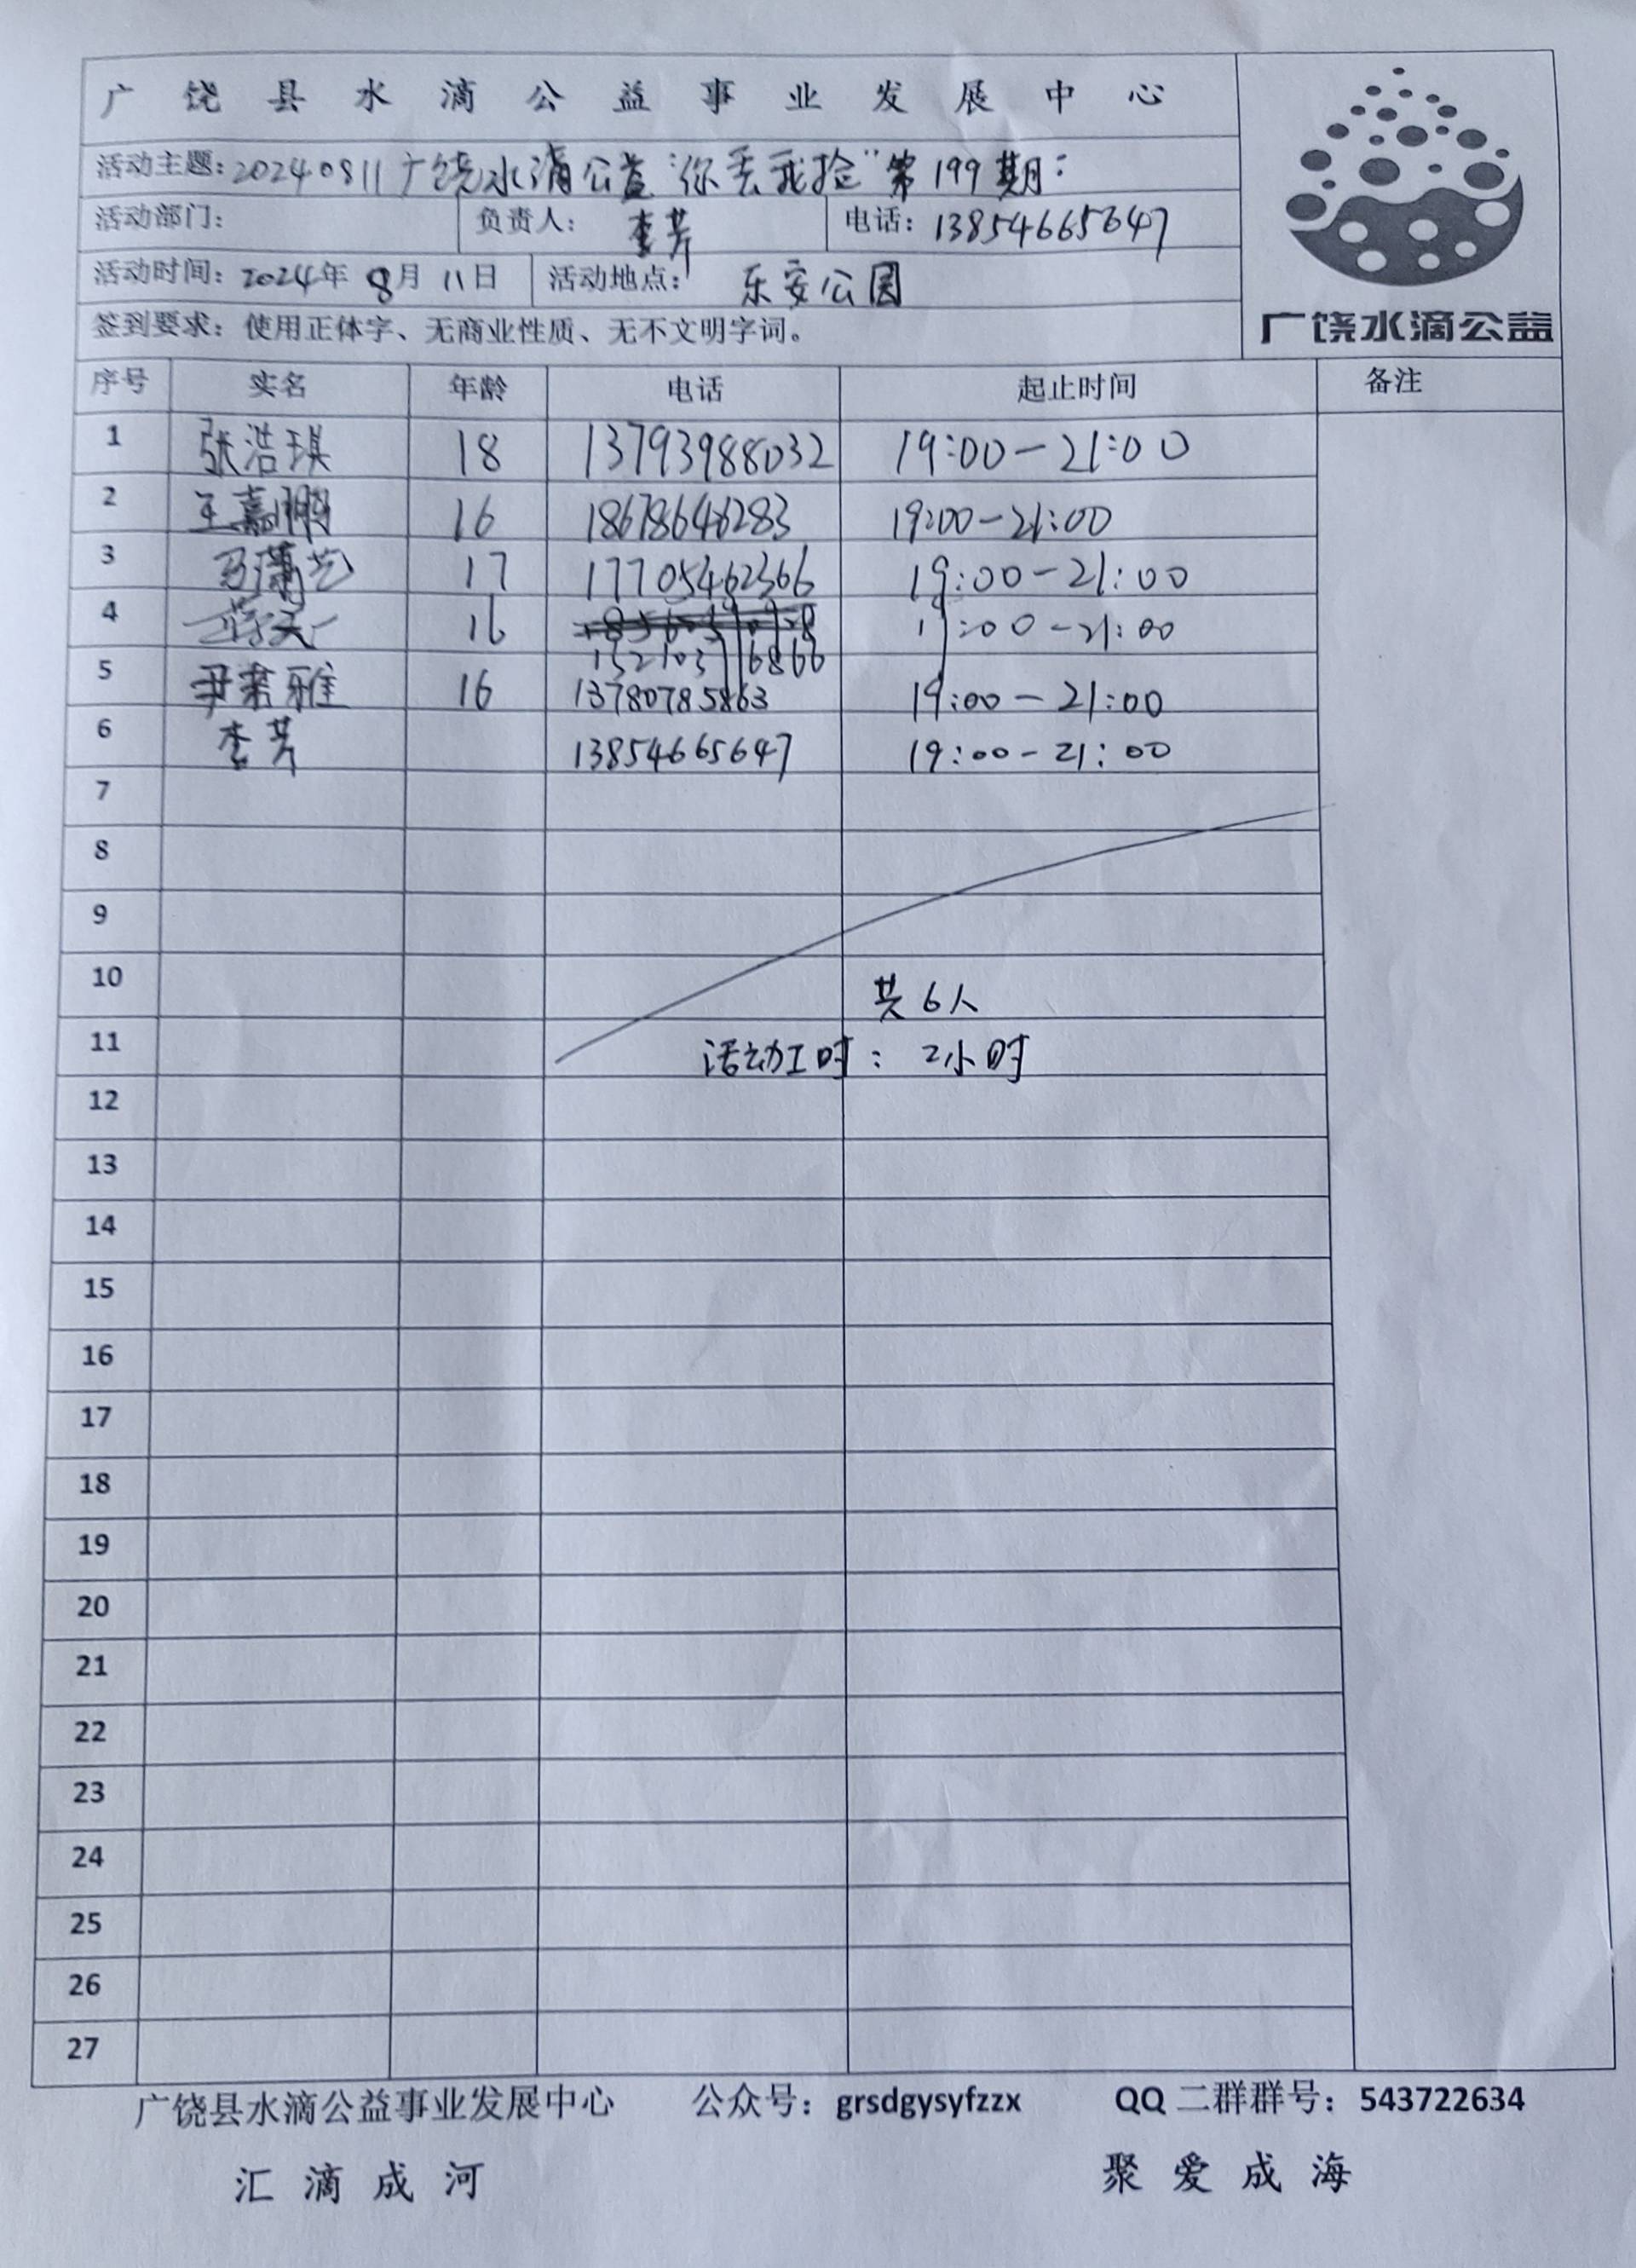 广饶县水滴公益事业发展中心
活动主题：20240811广饶水滴公益"你丢我捡"第199期：
活动部门： 负责人：李芳 电话：13854665647
活动时间：2024年8月11日 活动地点：乐安公园
签到要求：使用正体字、无商业性质、无不文明字词。
广饶水滴公益
序号 实名 年龄 电话 起止时间 备注
1 张浩琪 18 13793988032 19:00-21:00
2 王嘉鹏 16 18678646283 19:00-21:00
3 17 17705462366 19:00-21:00
4 16 19:00-21:00
15210376866
5 尹若雅 16 13780785863 19:00-21:00
6 李芳 13854665647 19:00-21:00
7
8
9
10 共6人
11 活动工时：2小时
12
13
14
15
16
17
18
19
20
21
22
23
24
25
26
27
广饶县水滴公益事业发展中心 公众号：grsdgysyfzzx QQ二群群号：543722634
汇滴成河 聚爱成海